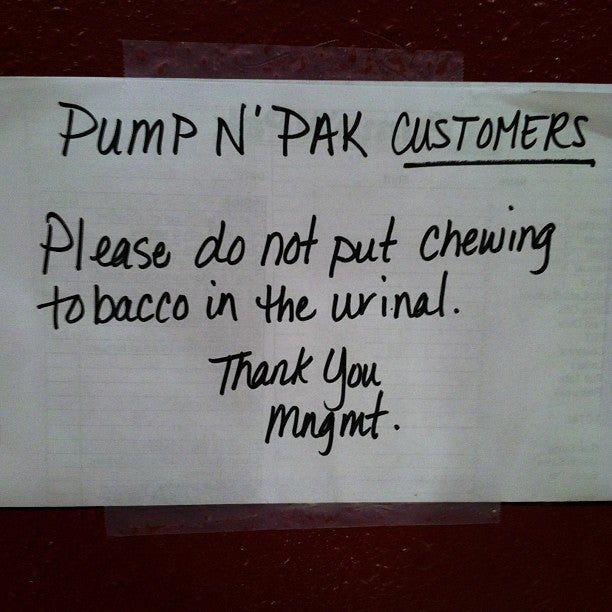 PUMP N' PAK CUSTOMERS
Please do not put chewing
tobacco in the urinal.
Thank You
Mngmt.